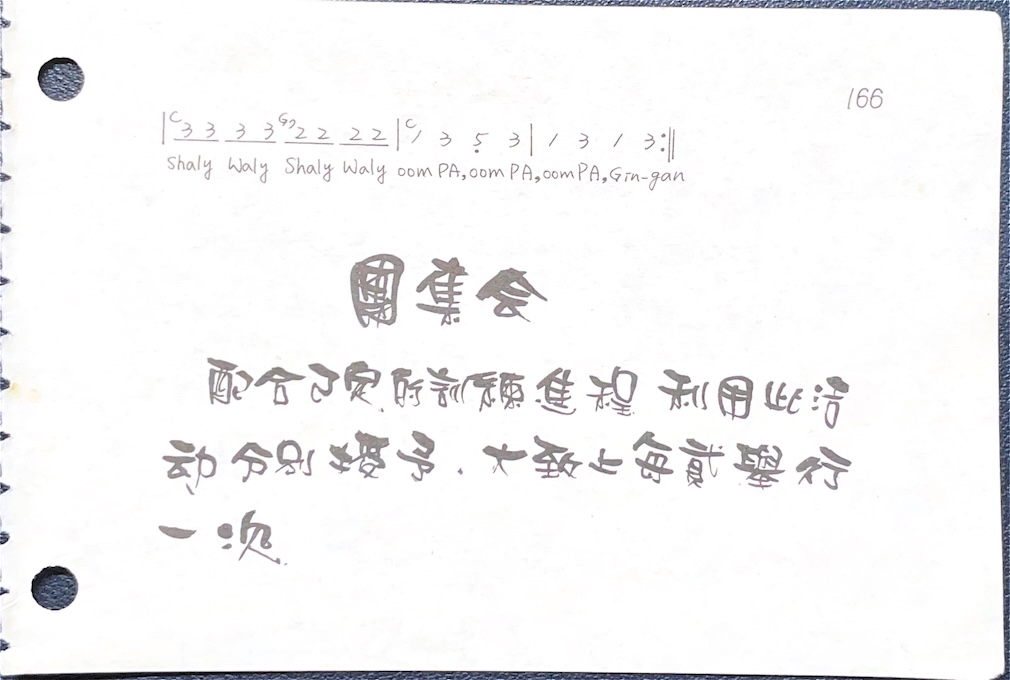 166
|C 3 3 3 3 G7 2 2 2 2 |C 1 3 5̣ 3 | 1 3 1 3 :||
Shaly Waly Shaly Waly oom PA, oom PA, oom PA, Gin-gan
團集会
配合已定的訓練進程 利用此活
动分别授予．大致上每貳舉行
一次